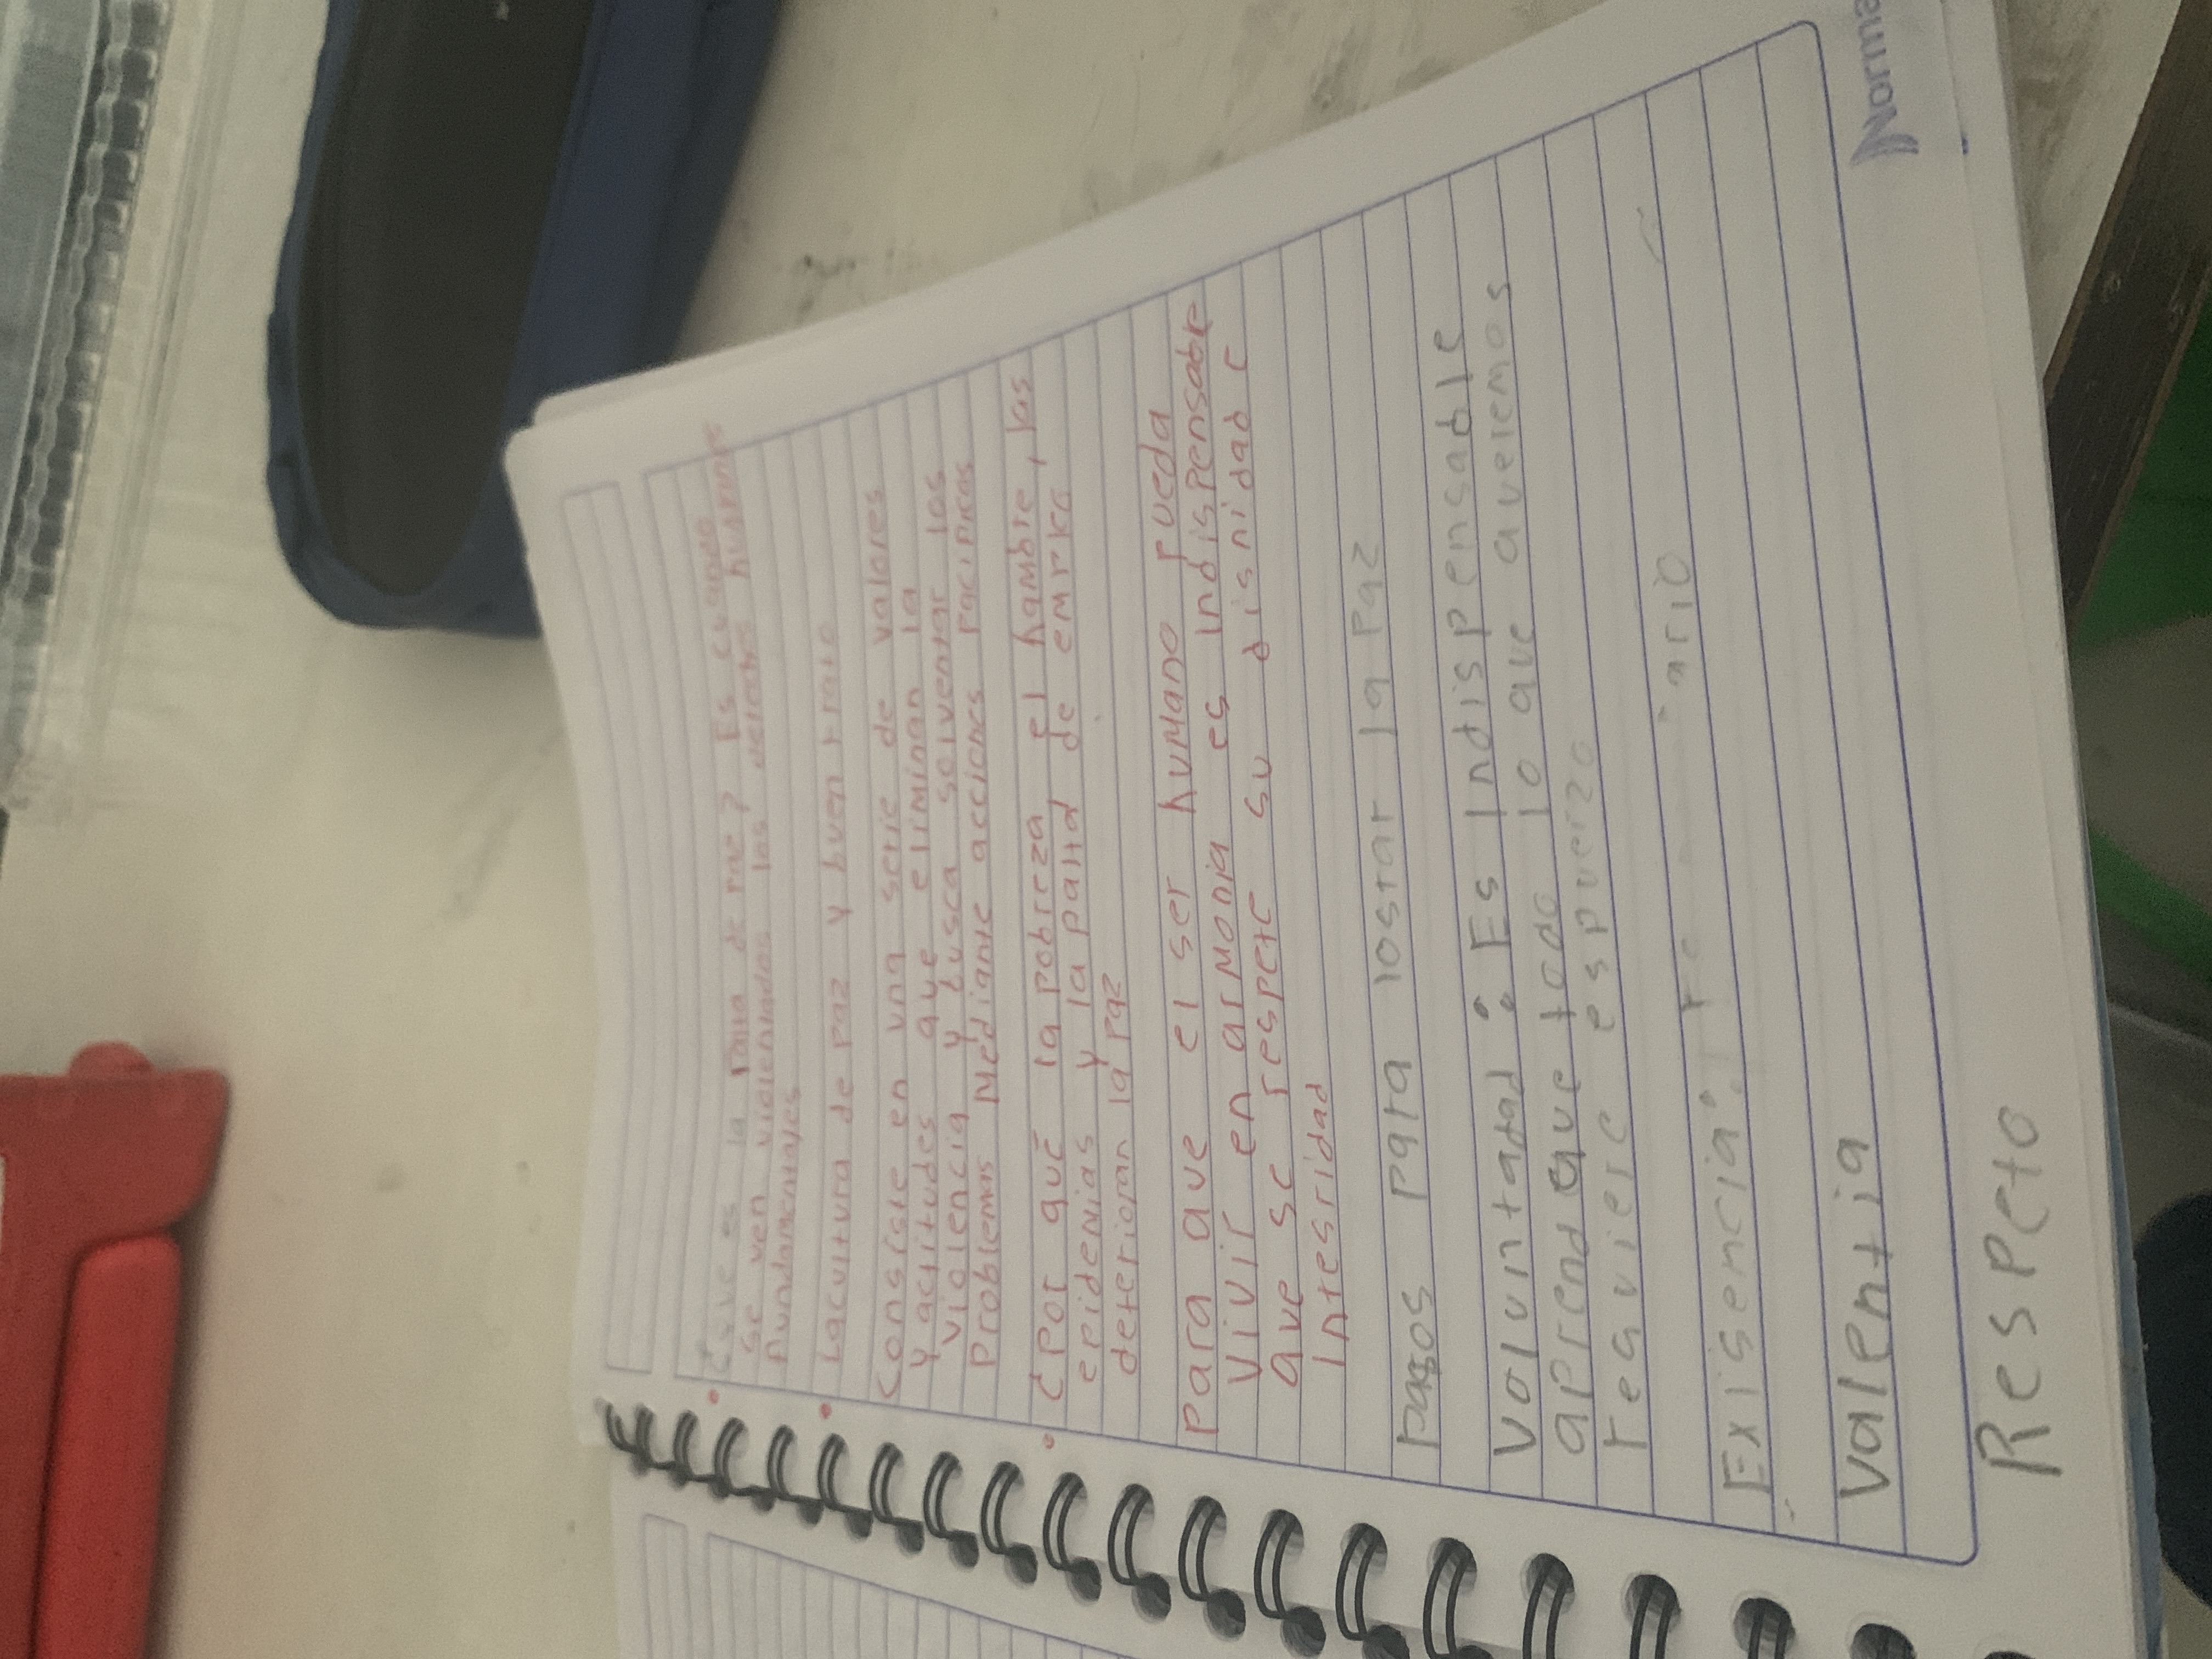 ¿Qué es la falta de paz? Es cuando
se ven violentados los derechos humanos
fundamentales
La cultura de paz y buen trato
Consiste en una serie de valores
y actitudes que eliminan la
violencia y busca solventar los
problemas mediante acciones pacificas
¿Por qué la pobreza el hambre, las
epidemias y la falta de
deterioran la paz
Para que el ser humano pueda
vivir en armonia es indispensable
que se respete su dignidad e
integridad
Pasos para lograr la paz
Voluntad: Es indispensable
aprend que todo lo que queremos
requiere esfuerzo
Exigencia:
Valentia
Respeto
Norma